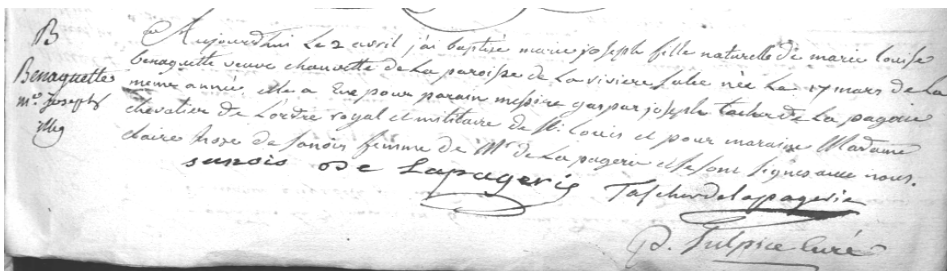 B
Benaguette
Me. Joseph
illeg
Aujourdhui Le 2 avril j'ai baptisé marie joseph fille naturelle de marie louise
benaguette veuve chauvette de La paroisse de La riviere salée née La 17 mars de La
meme année, elle a Eue pour parain messire gaspar joseph tacher de La pagerie
chevalier de L'ordre royal et militaire de St. Louis et pour maraine Madame
claire rose de sanois femme de Mr de La pagerie et se sont signés avec nous.
sanois De Lapagerie Tascher de la pagerie
p. Sulpice curé